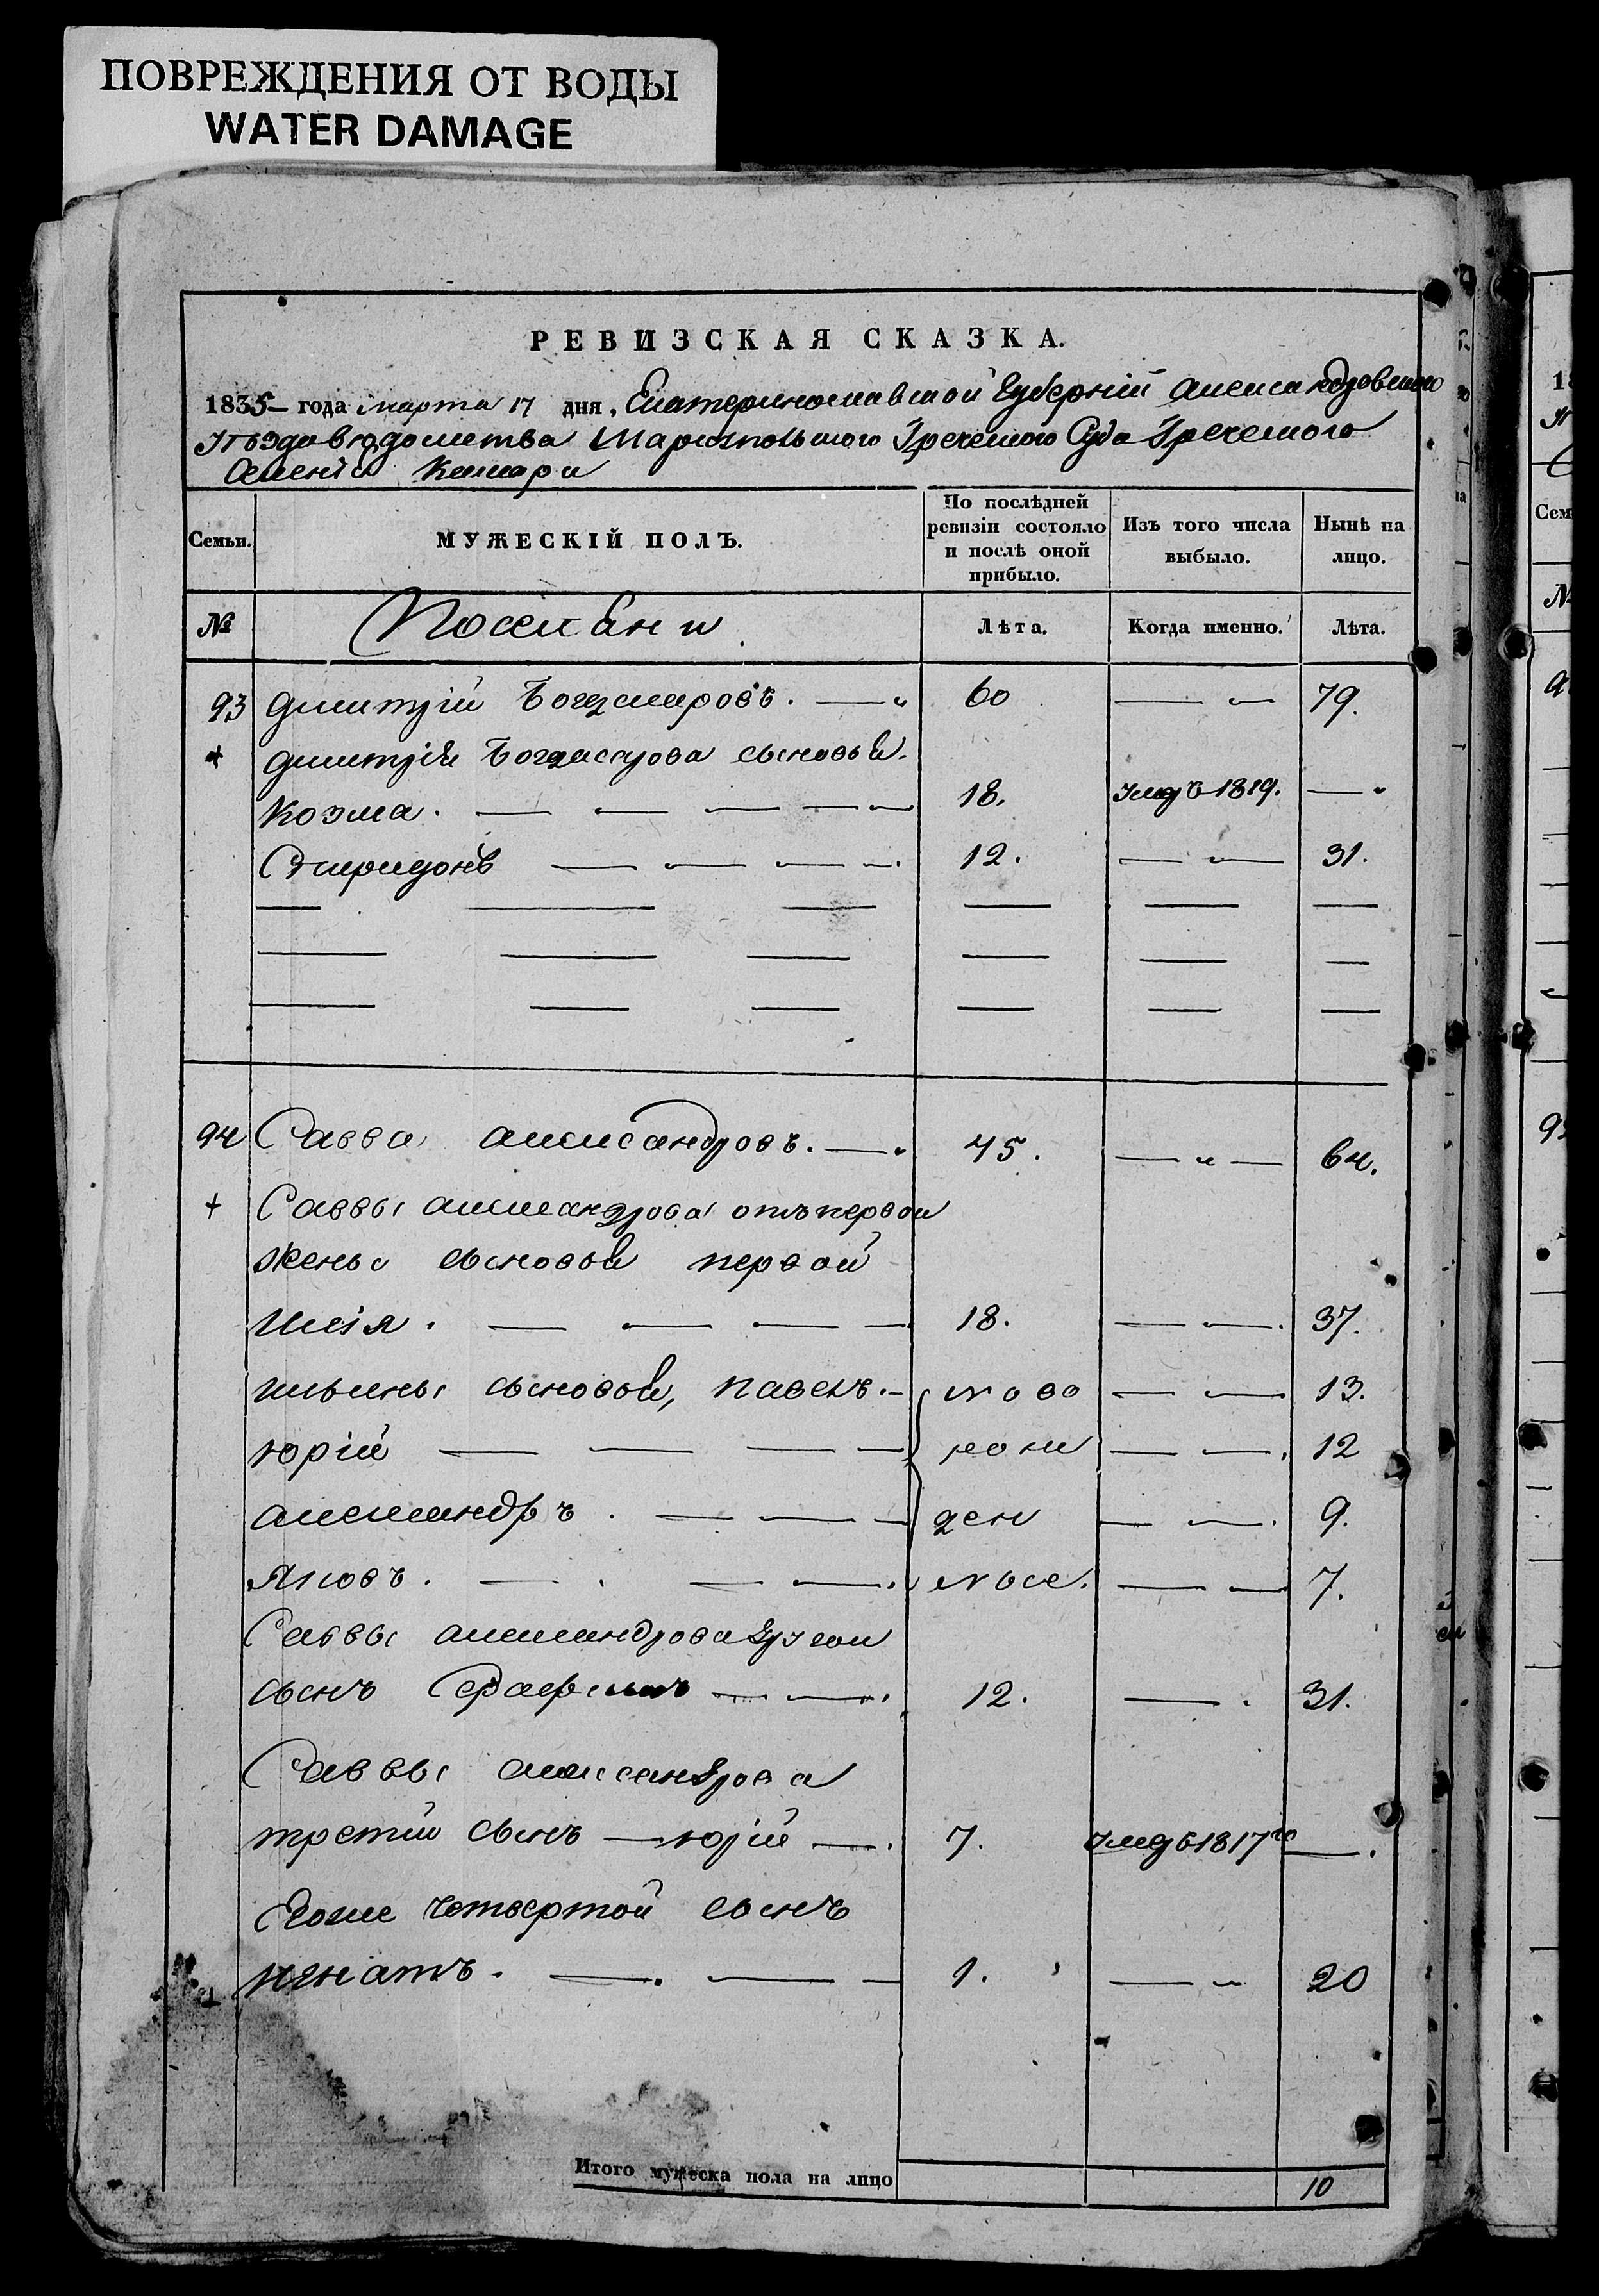 ПОВРЕЖДЕНИЯ ОТ ВОДЫ
WATER DAMAGE
РЕВИЗСКАЯ СКАЗКА.
1835 года марта 17 дня, Екатеринославской Губерніи Александровского
Уѣзда вѣдомства Мариупольского Греческого Суда Греческого
Селенія
Семьи. МУЖЕСКІЙ ПОЛЪ. По послѣдней ревизіи состояло и послѣ оной прибыло. Изъ того числа выбыло. Нынѣ на лицо.
№ Поселяни Лѣта. Когда именно. Лѣта.
93 Дмитрій 60 79.
Дмитрія сыновья
Козма. 18. умеръ 1819.
Спиридонъ 12. 31.
94 Савва Александровъ. 45. 64.
Саввы Александрова отъ первой
жены сыновья первой
Илія. 18. 37.
Ильины сыновья, Павелъ. ново 13.
Юрій рож 12
Александръ. ден 9.
Яковъ. ные. 7.
Саввы Александрова другой
сынъ 12. 31.
Саввы Александрова
третій сынъ Юрій 7. умеръ 1817го
Его же четвертой сынъ
Игнатъ. 1. 20
Итого мужеска пола на лицо 10